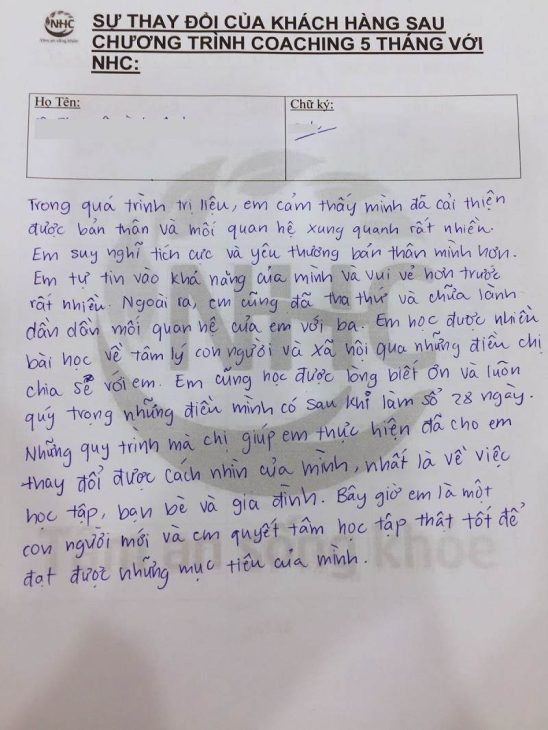 NHC
Tâm an sống khỏe
SỰ THAY ĐỔI CỦA KHÁCH HÀNG SAU
CHƯƠNG TRÌNH COACHING 5 THÁNG VỚI
NHC:
Họ Tên:
Chữ ký:
Trong quá trình trị liệu, em cảm thấy mình đã cải thiện
được bản thân và mối quan hệ xung quanh rất nhiều.
Em suy nghĩ tích cực và yêu thương bản thân mình hơn.
Em tự tin vào khả năng của mình và vui vẻ hơn trước
rất nhiều. Ngoài ra, em cũng đã tha thứ và chữa lành
dần dần mối quan hệ của em với ba. Em học được nhiều
bài học về tâm lý con người và xã hội qua những điều chị
chia sẻ với em. Em cũng học được lòng biết ơn và luôn
quý trọng những điều mình có sau khi làm sổ 28 ngày.
Những quy trình mà chị giúp em thực hiện đã cho em
thay đổi được cách nhìn của mình, nhất là về việc
học tập, bạn bè và gia đình. Bây giờ em là một
con người mới và em quyết tâm học tập thật tốt để
đạt được những mục tiêu của mình.
NHC
Tâm an sống khỏe